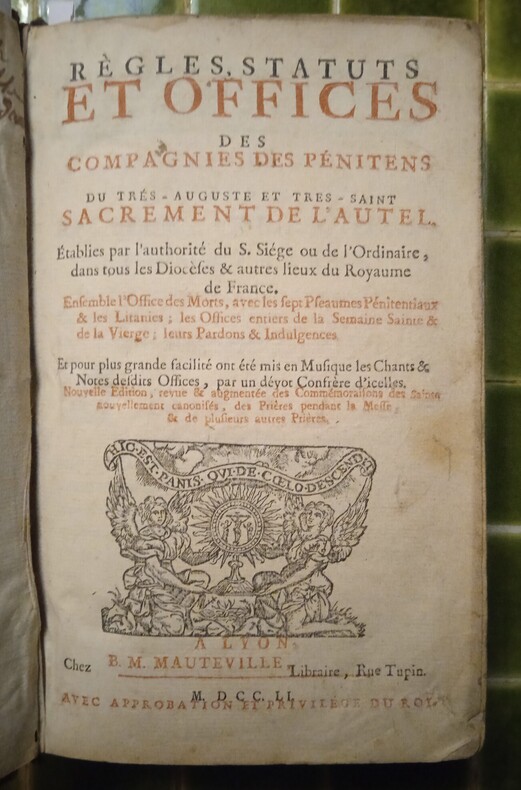 RÈGLES, STATUTS
ET OFFICES
DES
COMPAGNIES DES PÉNITENS
DU TRÉS-AUGUSTE ET TRES-SAINT
SACREMENT DE L'AUTEL.
Établies par l'authorité du S. Siége ou de l'Ordinaire,
dans tous les Diocèſes & autres lieux du Royaume
de France.
Enſemble l'Office des Morts, avec les ſept Pſeaumes Pénitentiaux
& les Litanies; les Offices entiers de la Semaine Sainte &
de la Vierge; leurs Pardons & Indulgences.
Et pour plus grande facilité ont été mis en Muſique les Chants &
Notes deſdits Offices, par un dévot Confrère d'icelles.
Nouvelle Édition, revue & augmentée des Commémorations des Saints
nouvellement canoniſés, des Prières pendant la Meſſe,
& de pluſieurs autres Prières.
HIC·EST·PANIS·QVI·DE·CŒLO·DESCENDI
A LYON,
Chez B. M. MAUTEVILLE, Libraire, Rue Tupin.
M. DCC. LI.
AVEC APPROBATION ET PRIVILÈGE DU ROI.